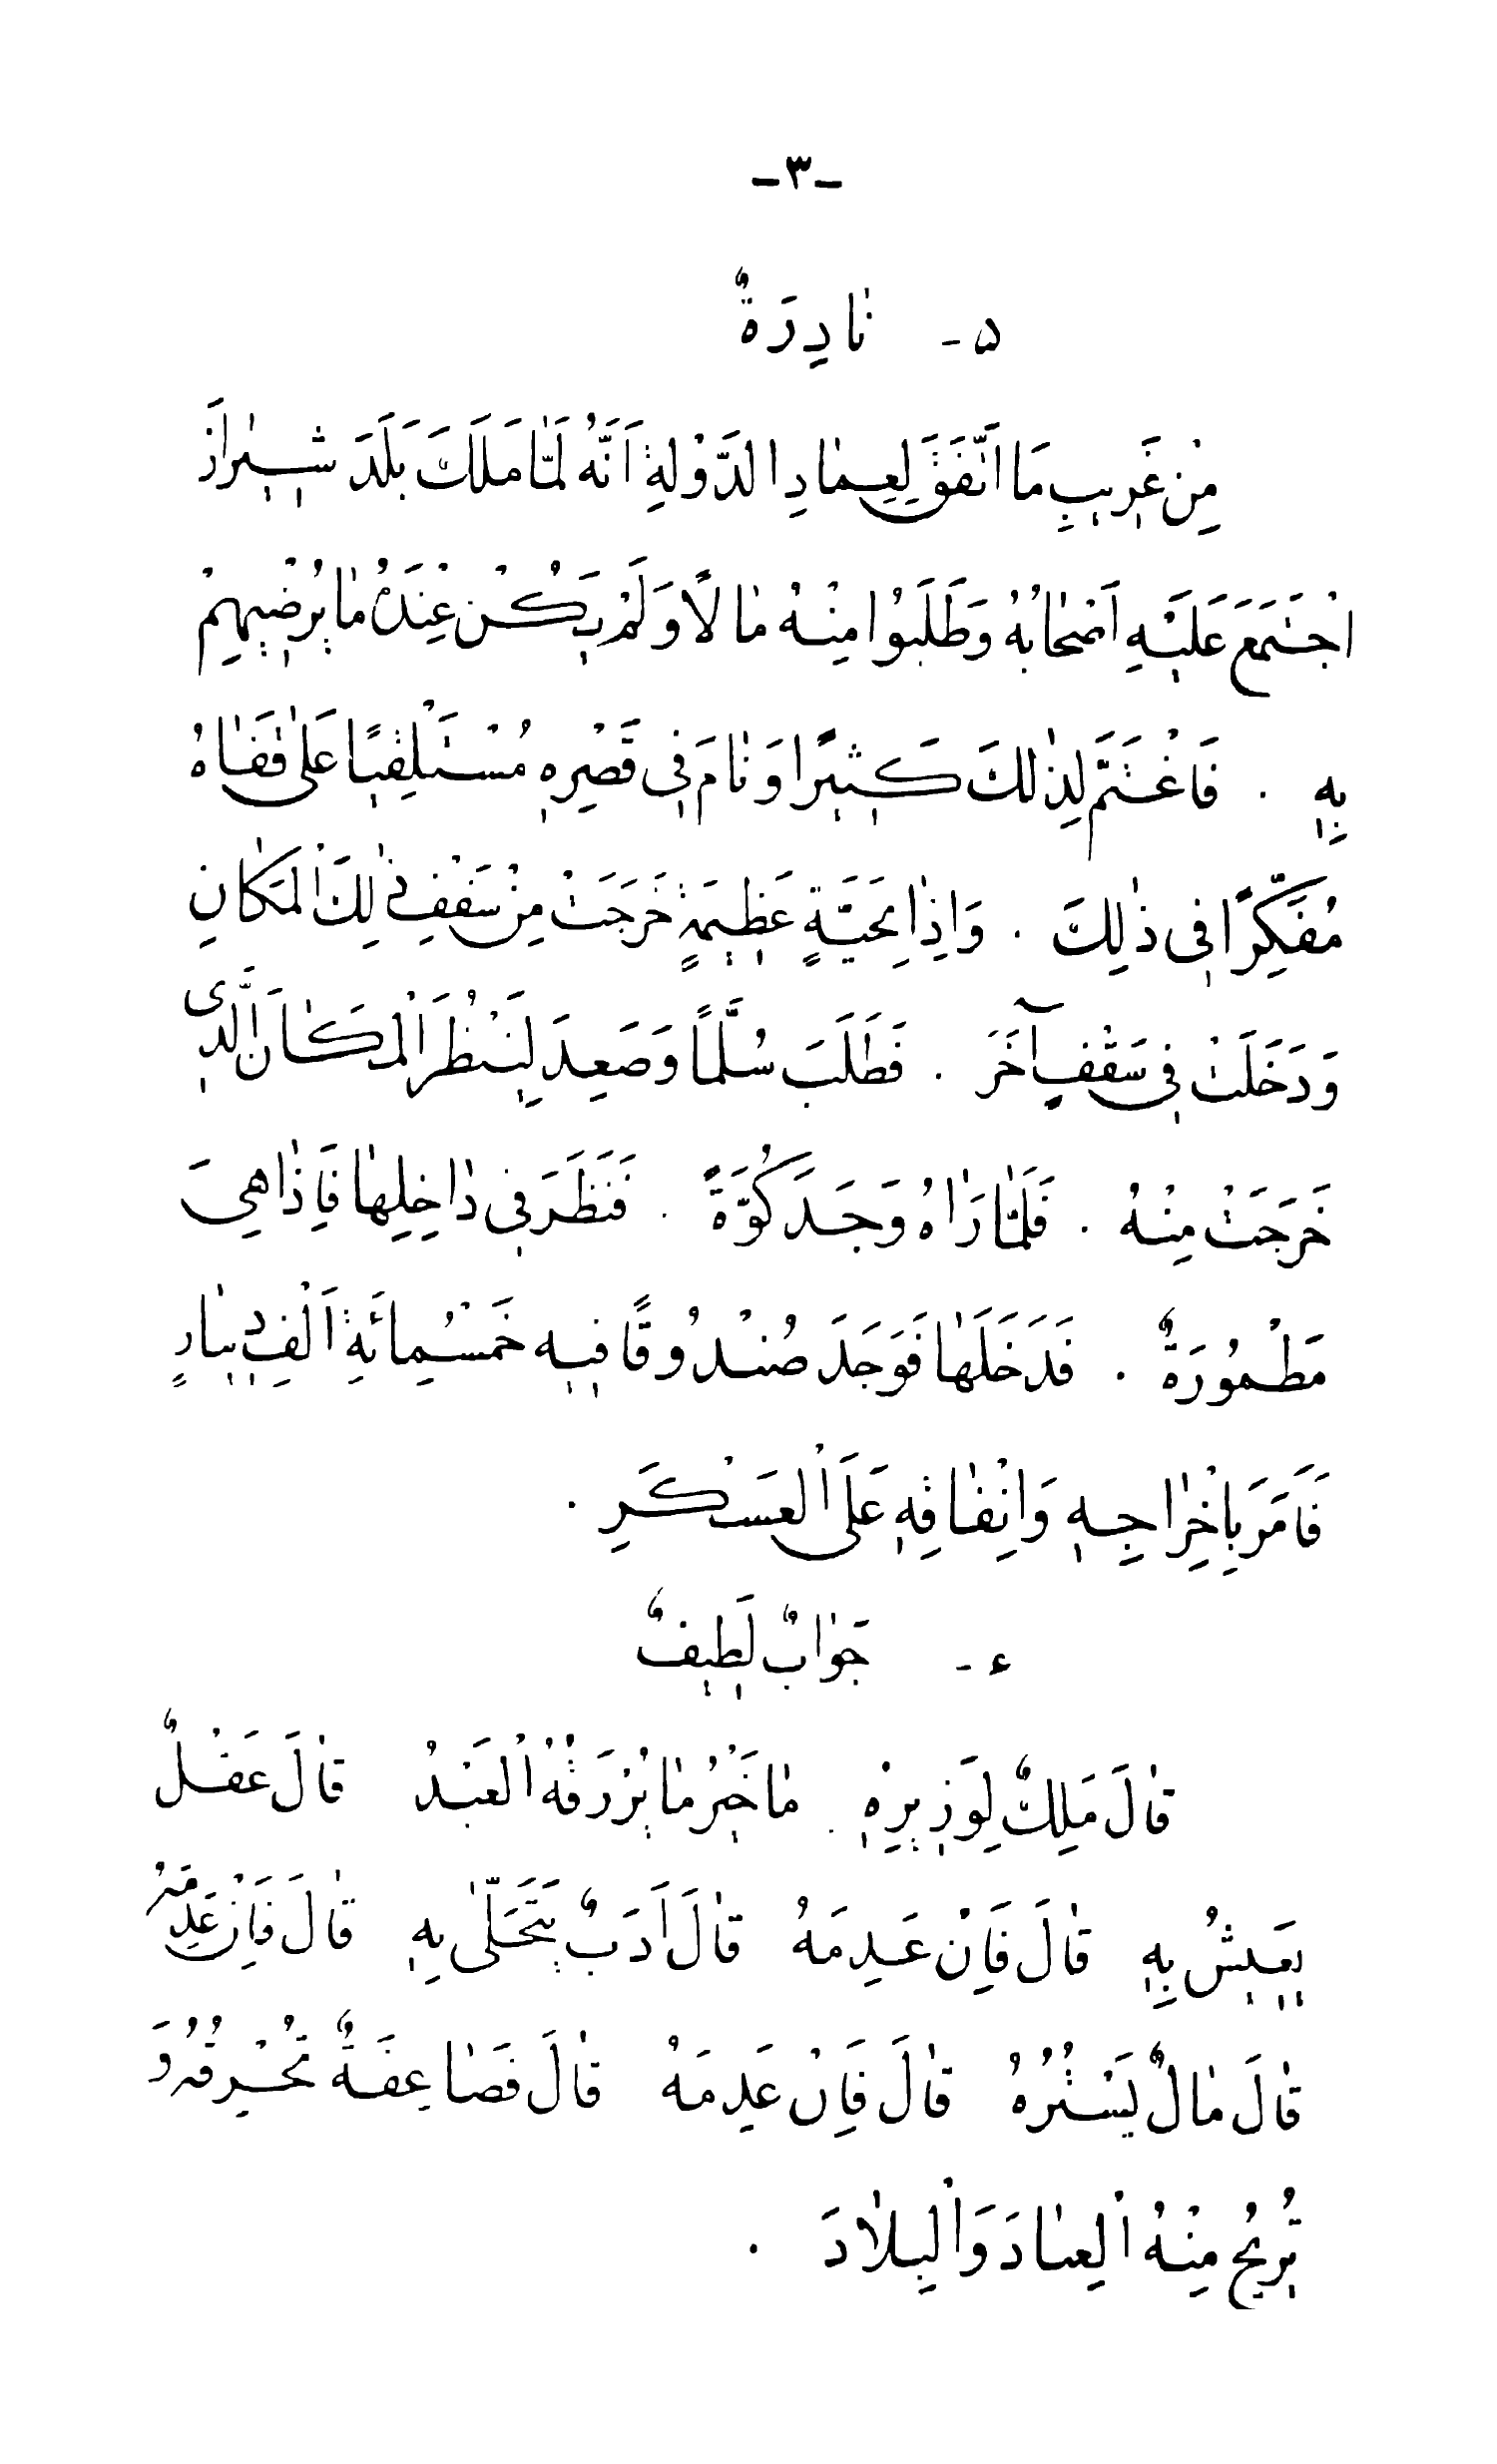 -٣-
۵- نَادِرَةٌ
مِنْ غَرِيبِ مَا اتَّفَقَ لِعِمَادِ الدَّوْلَةِ اَنَّهُ لَمَّا مَلَكَ بَلَدَ شِيرَازَ
اجْتَمَعَ عَلَيْهِ اَصْحَابُهُ وَطَلَبُوا مِنْهُ مَالًا وَلَمْ يَكُنْ عِنْدَهُ مَا يُرْضِيهِمْ
بِهِ . فَاغْتَمَّ لِذٰلِكَ كَثِيرًا وَنَامَ فِي قَصْرِهِ مُسْتَلْقِيًا عَلَى قَفَاهُ
مُفَكِّرًا فِي ذٰلِكَ . وَاِذَا بِحَيَّةٍ عَظِيمَةٍ خَرَجَتْ مِنْ سَقْفِ ذٰلِكَ الْمَكَانِ
وَدَخَلَتْ فِي سَقْفٍ آخَرَ . فَطَلَبَ سُلَّمًا وَصَعِدَ لِيَنْظُرَ الْمَكَانَ الَّذِى
خَرَجَتْ مِنْهُ . فَلَمَّا رَاٰهُ وَجَدَ كُوَّةً . فَنَظَرَ فِي دَاخِلِهَا فَاِذَا هِيَ
مَطْمُورَةٌ . فَدَخَلَهَا فَوَجَدَ صُنْدُوقًا فِيهِ خَمْسُمِائَةِ اَلْفِ دِينَارٍ
فَاَمَرَ بِاِخْرَاجِهِ وَاِنْفَاقِهِ عَلَى الْعَسْكَرِ .
ء- جَوَابٌ لَطِيفٌ
قَالَ مَلِكٌ لِوَزِيرِهِ . مَا خَيْرُ مَا يُرْزَقُهُ الْعَبْدُ قَالَ عَقْلٌ
يَعِيشُ بِهِ قَالَ فَاِنْ عَدِمَهُ قَالَ اَدَبٌ يَتَحَلّٰى بِهِ قَالَ فَاِنْ عَدِمَهُ
قَالَ مَالٌ يَسْتُرُهُ قَالَ فَاِنْ عَدِمَهُ قَالَ فَصَاعِقَةٌ تُحْرِقُهُ وَ
تُرِيحُ مِنْهُ الْعِبَادَ وَالْبِلَادَ .